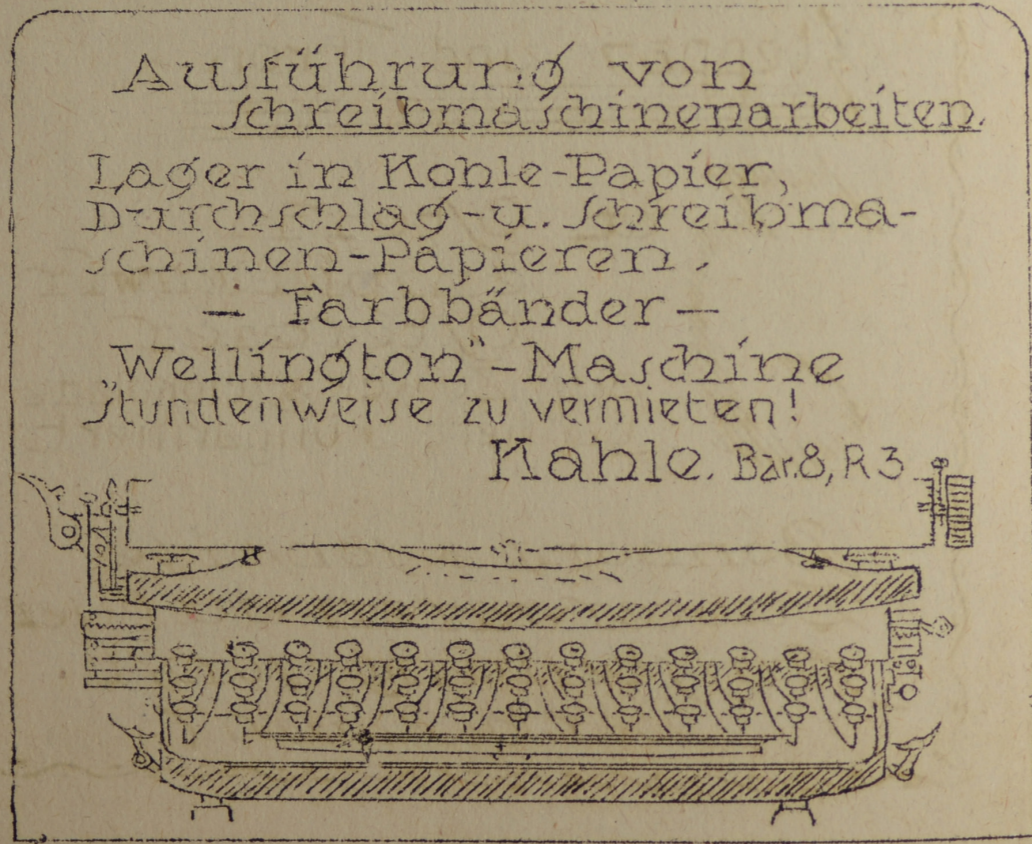 Ausführung von
Schreibmaschinenarbeiten.
Lager in Kohle-Papier,
Durchschlag-u. Schreibma-
schinen-Papieren.
- Farbbänder -
"Wellington"-Maschine
stundenweise zu vermieten!
Kahle. Bar. 8, R 3